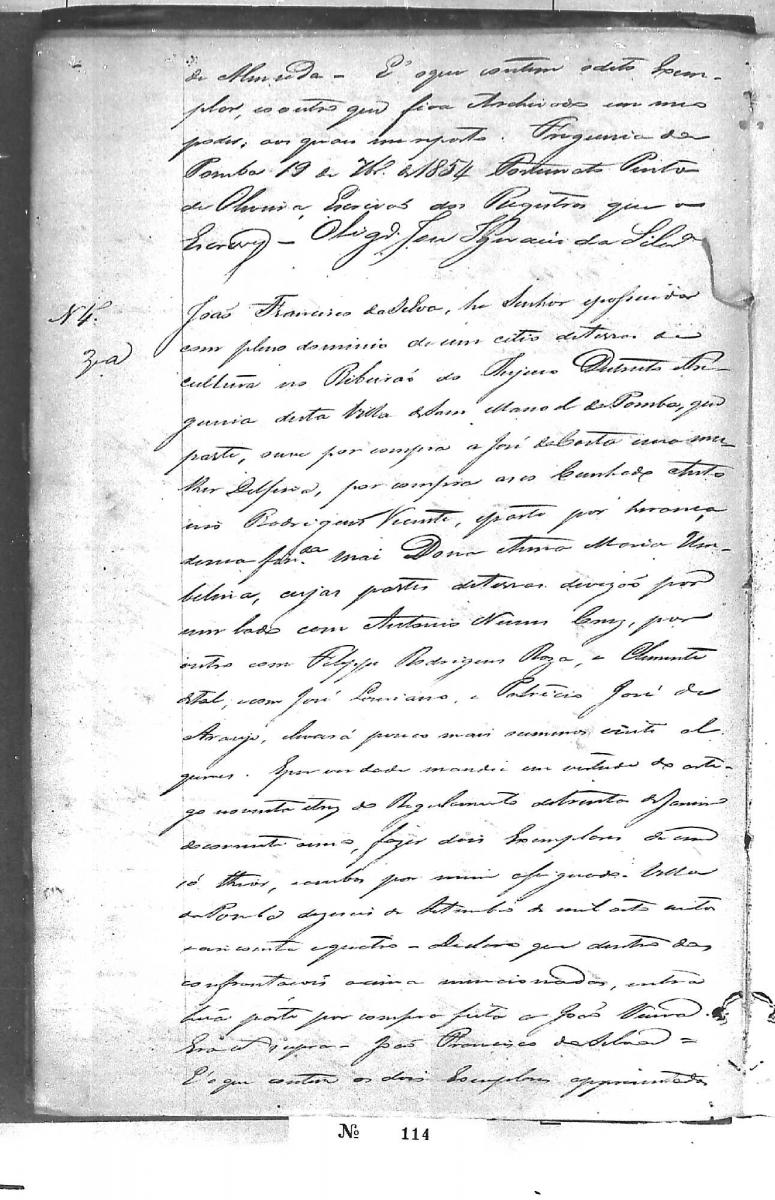 de Almeida – E' o que contem o dito Exem-
plar, e o outro que fica Archivado em meo
poder, aos quaes me reporto. Freguesia da
Pomba 19 de 7br.º de 1854 Fortunato Pinto
de Oliveira, Escrivaõ dos Registros que o
Escrevy –
Nº 4.
João Francisco da Silva, he Senhor e possuidor
com pleno dominio de um citio de terras de
cultura no Ribeiraõ do Districto Fre-
guesia desta Villa de Sam Manoel da Pomba, que
parte, ouve por compra a José da Costa e sua mu-
lher Delfina, por compra a seo Cunhado Anto
nio Rodrigues Vicente, e parte por herança
de sua fin.da Mai Dona Anna Maria Um-
belina, cujas partes de terras devizaõ por
um lado com Antonio Nunes Cruz, por
outro com Felippe Rodrigues Roza, e Clemente
de tal, e com José , e Patricio José de
Araujo, e levará pouco mais ou menos vinte al-
queires. E por verdade mandei em virtude do arti-
go noventa e trez do Regulamento de trinta de Janeiro
do corrente anno, fazer dois Exemplares de um
só theor, e ambos por mim assignado. Villa
da Pomba dezeseis de Setembro de mil oito centos
e cincoenta e quatro – Declaro que dentro das
confrontaçoẽs acima mencionadas, entra
huã parte por compra feita a João Vieira.
Era et supra – João Francisco da Silva =
E' o que contem os dois Exemplares appresentados
Nº 114